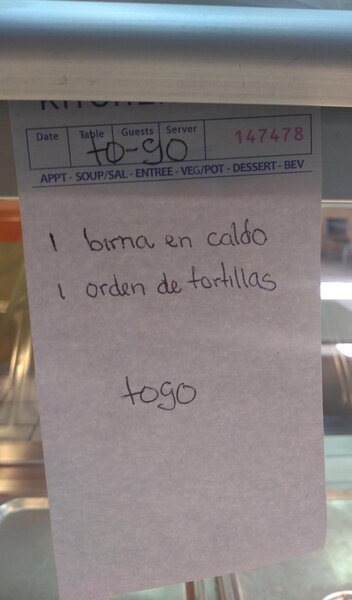 Date Table Guests Server 147478
to-go
APPT - SOUP/SAL - ENTREE - VEG/POT - DESSERT - BEV
1 birria en caldo
1 orden de tortillas
togo